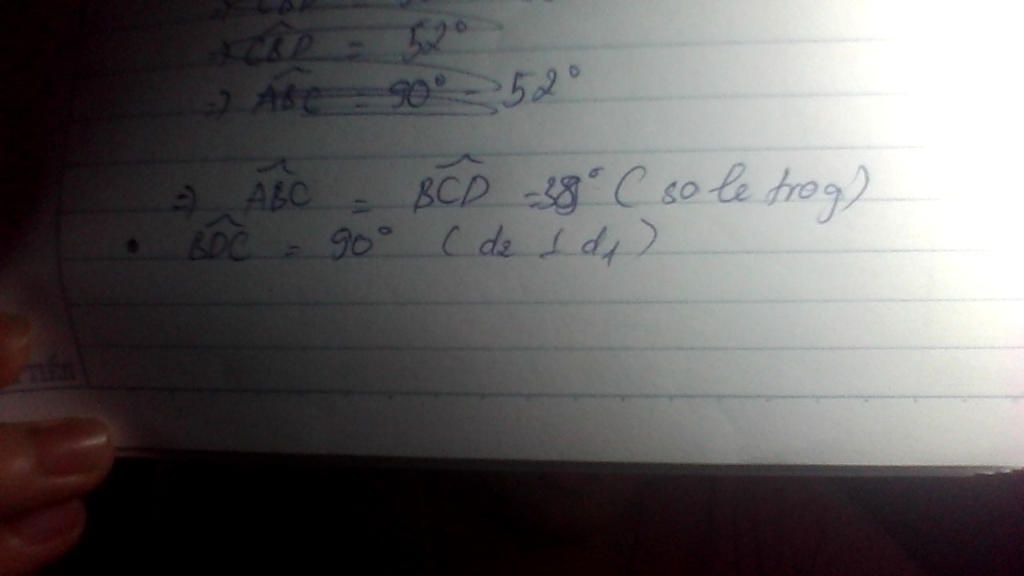 ⇒ CBD = 52°
⇒ ABC = 90° - 52°
⇒ ABC = BCD = 38° (so le trog)
• BDC = 90° (d2 ⊥ d1)